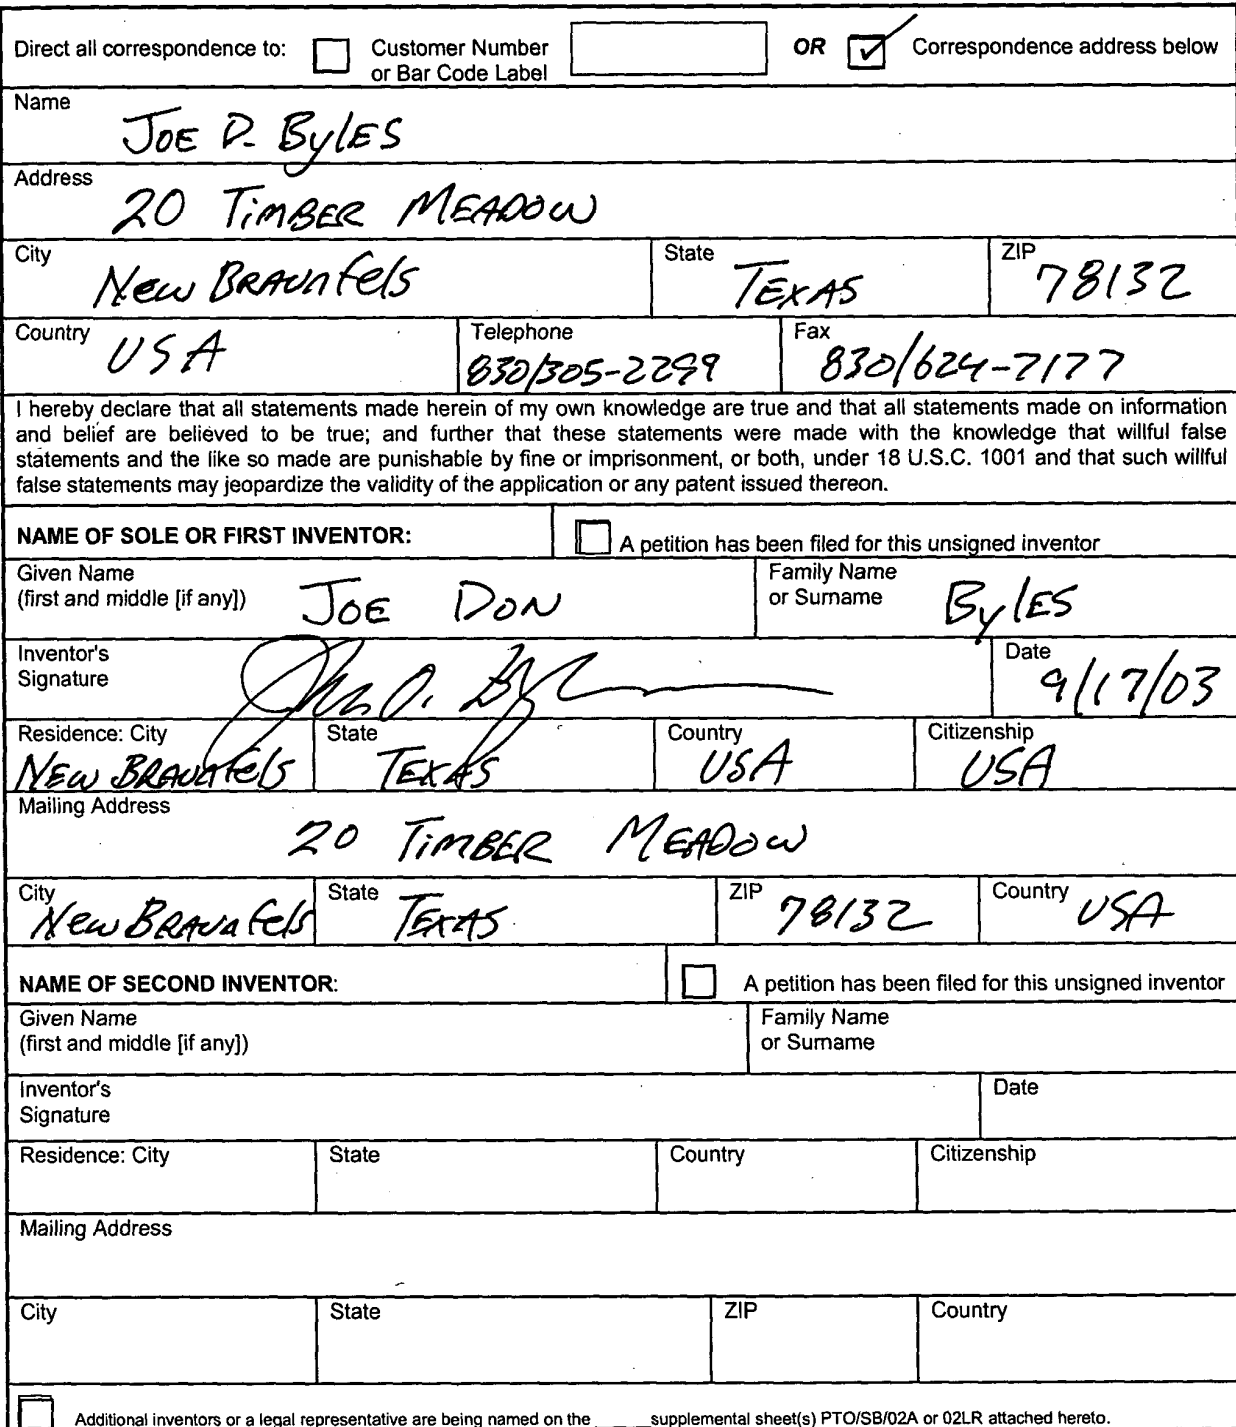 Direct all correspondence to: Customer Number or Bar Code Label OR ✓ Correspondence address below
Name
JOE D. BylES
Address
20 TiMBER MEADOW
City State ZIP
New BRAUnfels TEXAS 78132
Country Telephone Fax
USA 830/305-2299 830/624-7177
I hereby declare that all statements made herein of my own knowledge are true and that all statements made on information
and belief are believed to be true; and further that these statements were made with the knowledge that willful false
statements and the like so made are punishable by fine or imprisonment, or both, under 18 U.S.C. 1001 and that such willful
false statements may jeopardize the validity of the application or any patent issued thereon.
NAME OF SOLE OR FIRST INVENTOR: A petition has been filed for this unsigned inventor
Given Name Family Name
(first and middle [if any]) JOE DON or Surname BylES
Inventor's Date
Signature Joe D. Byles 9/17/03
Residence: City State Country Citizenship
NEW BRAUnfels TEXAS USA USA
Mailing Address
20 TiMBER MEADOW
City State ZIP Country
New BRAUnfels TEXAS 78132 USA
NAME OF SECOND INVENTOR: A petition has been filed for this unsigned inventor
Given Name Family Name
(first and middle [if any]) or Surname
Inventor's Date
Signature
Residence: City State Country Citizenship
Mailing Address
City State ZIP Country
Additional inventors or a legal representative are being named on the _____supplemental sheet(s) PTO/SB/02A or 02LR attached hereto.